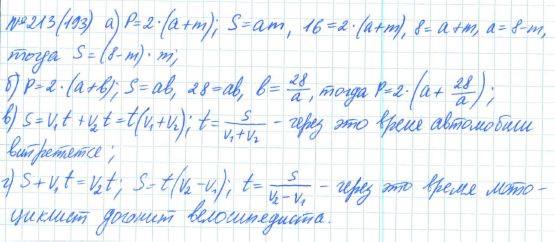 №213(193) а) P=2·(a+m); S=am, 16=2·(a+m), 8=a+m, a=8-m,
тогда S=(8-m)·m;
б) P=2·(a+b); S=ab, 28=ab, b=28/a, тогда P=2·(a+28/a);
в) S=v₁t+v₂t=t(v₁+v₂); t=S/(v₁+v₂) - через это время автомобили
витретятся;
г) S+v₁t=v₂t; S=t(v₂-v₁); t=S/(v₂-v₁) - через это время мото-
циклист догонит велосипедиста.